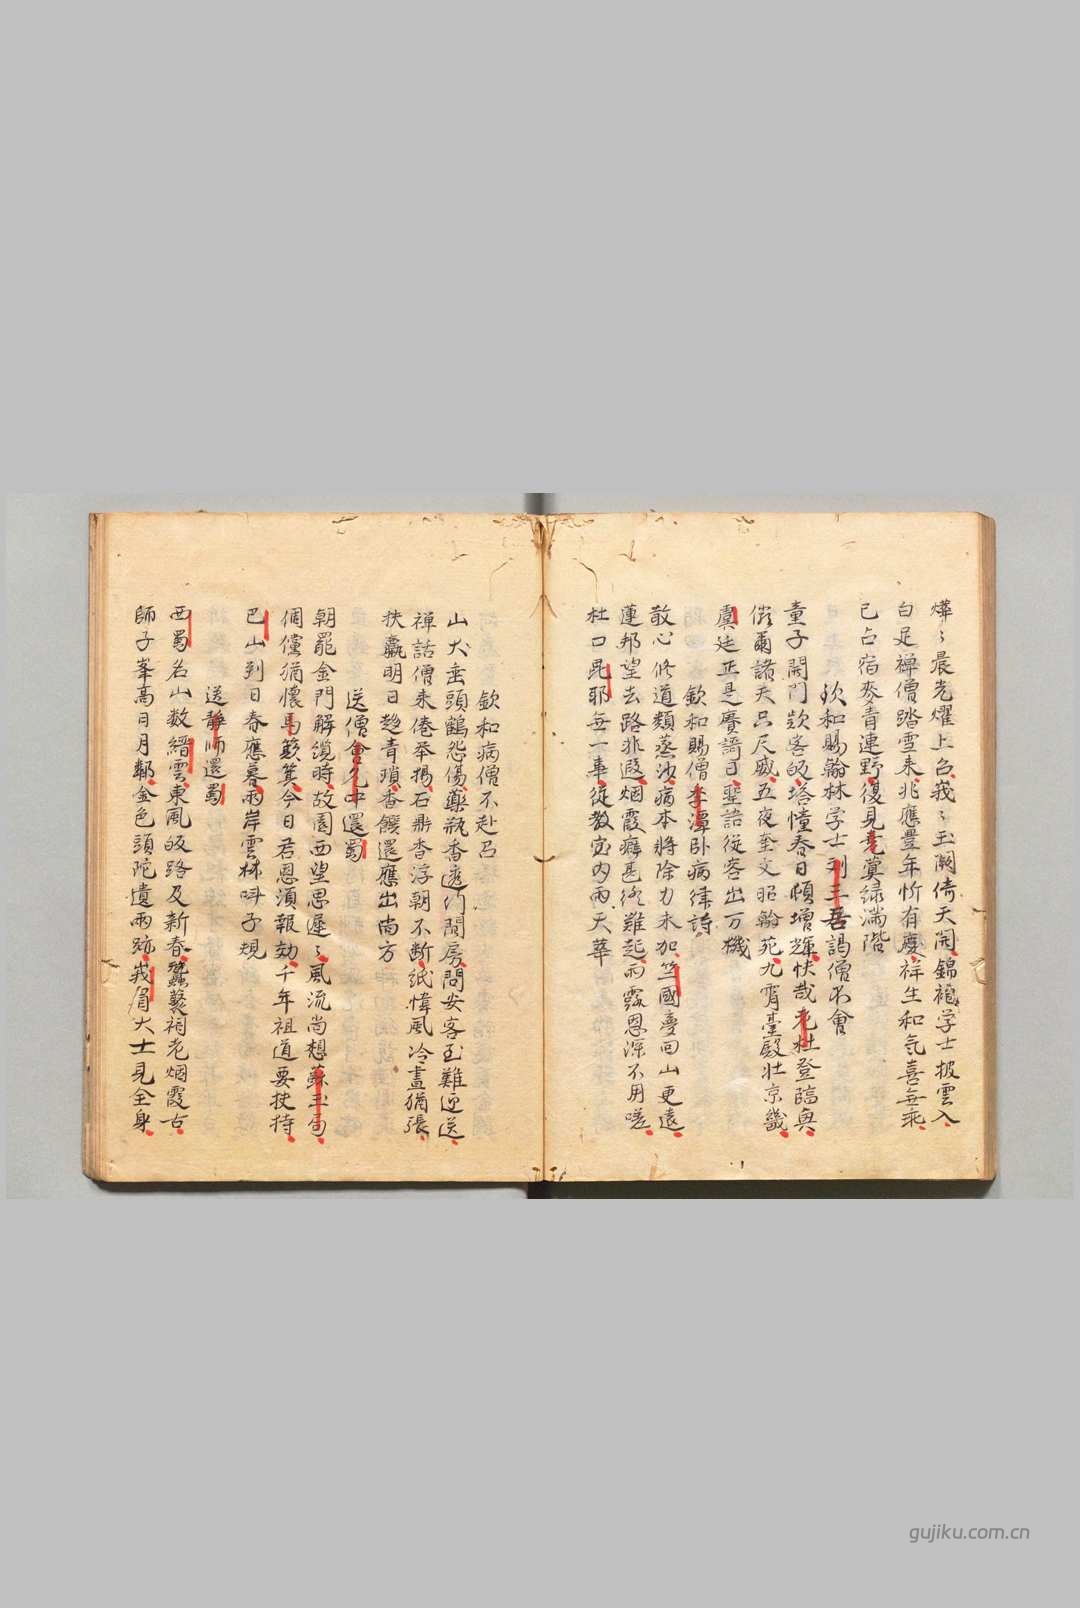 燁〻晨光燿上台峩〻玉闕倚天開錦袍学士披雲入
白足禅僧踏雪来兆應豊年忻有慶祥生和気喜無乖
已占宿麥青連野復見堯蓂緑滿階
欽和賜翰林学士劉三吾謁僧不會
童子開門欵客皈塔憧春日頓增輝快哉老杜登臨與
俗爾諸天只尺威五夜奎文昭翰苑九霄臺殿壮京畿
虞廷正是賡謌日聖語従客出万機
欽和賜僧李潭卧病律詩
散心修道類蒸沙病本將除力未加竺國夢回山更遠
蓮邦望去路非遐烟霞癖甚終難起雨露恩深不用嗟
杜口毘耶無一事従教室内雨天華
欽和病僧不赴召
山犬垂頭鶴怨傷藥瓶香透竹間房問安客到難迎送
禅話僧来倦举揚石鼎香浮朝不断紙幃風冷晝猶張
扶羸明日趍青瑣香饌還應出尚方
送僧會九中還蜀
朝罷金門解纜時故園西望思遲〻風流尚想蘇玉局
倜儻猶懷馬簸箕今日君恩須報効千年祖道要扶持
巴山到日春應暮兩岸雲林叫子規
送静師還蜀
西蜀名山数縉雲東風皈路及新春蠶叢祠老烟霞古
師子峯高日月鄰金色頭陀遺兩跡峩眉大士見全身
gujiku.com.cn